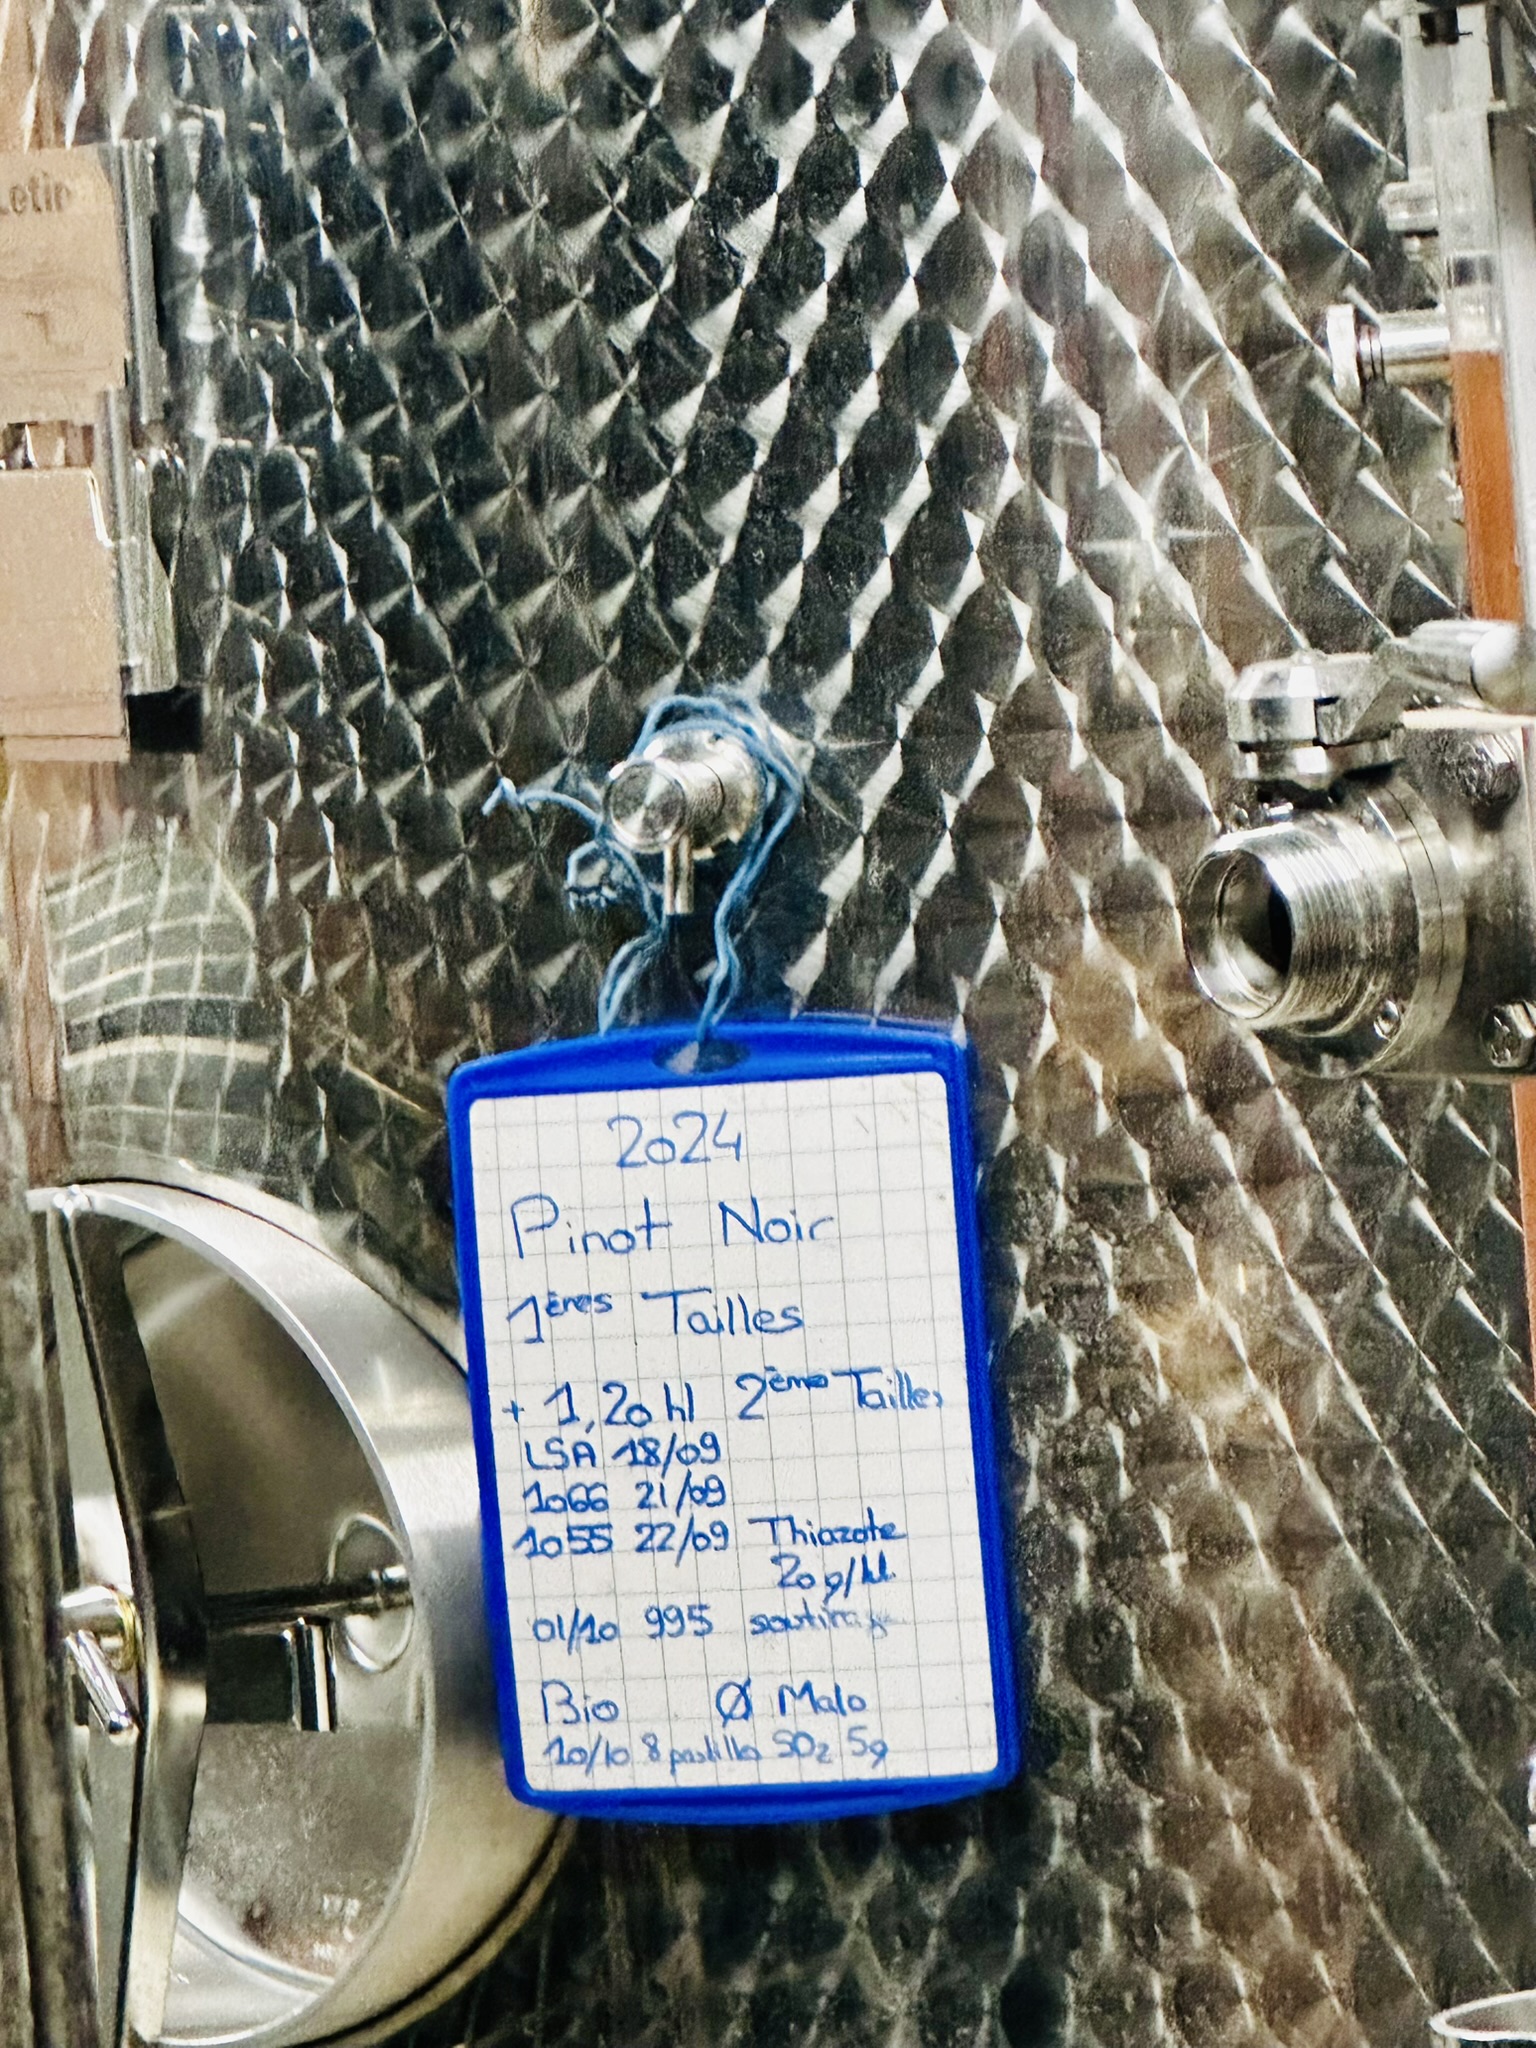 2024
Pinot Noir
1ères Tailles
+ 1,20 hl 2ème Tailles
LSA 18/09
1066 21/09
1055 22/09 Thiazote
20 g/hl
01/10 995 soutirage
Bio Ø Malo
10/10 8 pastilles SO2 5g